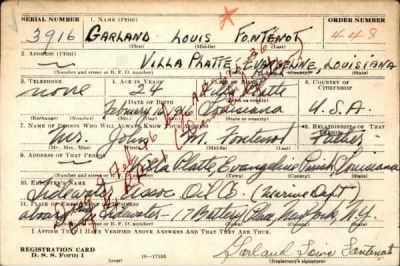 SERIAL NUMBER 1. NAME (Print) ORDER NUMBER
3916 GARLAND LOUIS FONTENOT 448
(First) (Middle) (Last)
2. ADDRESS (Print)
VILLA PLATTE, EVANGELINE, LOUISIANA
(Number and street or R. F. D. number) (Town) (State)
3. TELEPHONE 4. AGE IN YEARS 5. PLACE OF BIRTH 6. COUNTRY OF CITIZENSHIP
none 24 Platte
DATE OF BIRTH
February Louisiana U.S.A.
7. NAME OF PERSON WHO WILL ALWAYS KNOW YOUR ADDRESS 8. RELATIONSHIP OF THAT PERSON
John Fontenot Father
(Mr., Mrs., Miss) (First) (Middle) (Last)
9. ADDRESS OF THAT PERSON
Platte, Evangeline Parish, Louisiana
(Number and street or R. F. D. number) (Town) (County) (State)
10. EMPLOYER'S NAME
Tidewater Assoc. Oil Co. (Marine Dept)
Tidewater - 17 Battery Place, New York, N.Y.
(Number and street or R. F. D. number) (Town) (County) (State)
I AFFIRM THAT I HAVE VERIFIED ABOVE ANSWERS AND THAT THEY ARE TRUE.
REGISTRATION CARD
D. S. S. Form 1 (over) 16—17105
Garland Louis Fontenot
(Registrant's signature)